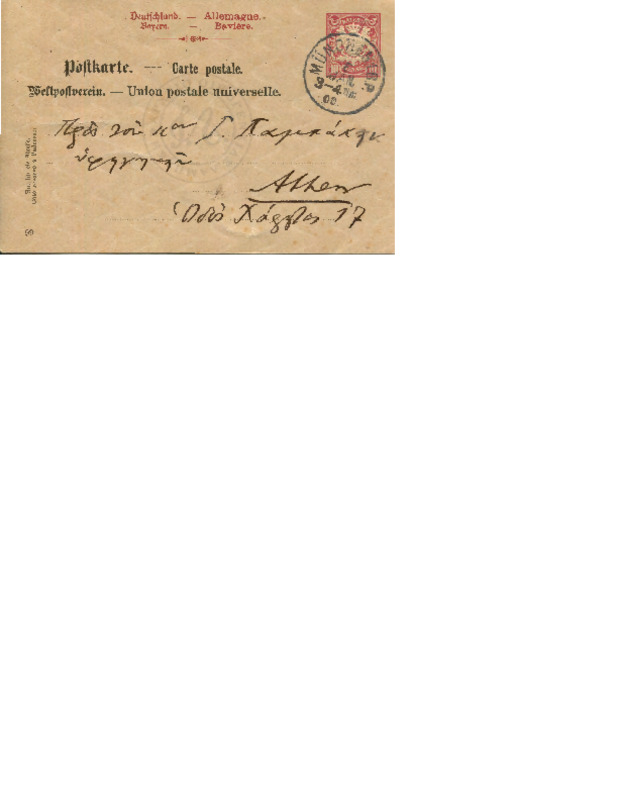 Deutschland. — Allemagne.
Bayern. — Bavière.
Postkarte. — Carte postale.
Weltpostverein. — Union postale universelle.
MÜNCHEN
3-4
Πρὸς τὸν κον Γ. Λαμπάκην
ὑφηγητὴν
Athen
Ὁδὸς Χάρητος 17